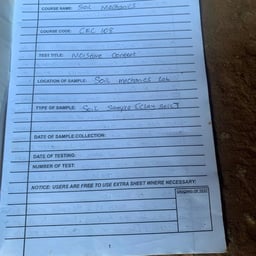 COURSE NAME: Soil Mechanics
COURSE CODE: CEC 108
TEST TITLE: Moisture Content
LOCATION OF SAMPLE: Soil mechanics lab
TYPE OF SAMPLE: Soil Sample [Clay Soil]
DATE OF SAMPLE COLLECTION:
DATE OF TESTING:
NUMBER OF TEST:
NOTICE: USERS ARE FREE TO USE EXTRA SHEET WHERE NECESSARY.
1